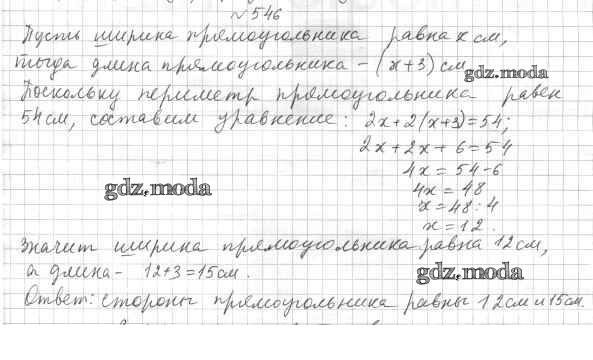 № 546
Пусть ширина прямоугольника равна x см,
тогда длина прямоугольника - (x+3) см
gdz.moda
Поскольку периметр прямоугольника равен
54 см, составим уравнение: 2x+2(x+3)=54;
2x+2x+6=54
4x = 54-6
4x = 48
gdz.moda
x=48:4
x=12.
Значит ширина прямоугольника равна 12 см,
а длина - 12+3=15 см.
gdz.moda
Ответ: стороны прямоугольника равны 12 см и 15 см.